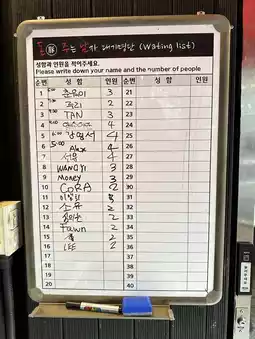 돈 주는 남자 대기명단 (Wating list)
성함과 인원을 적어주세요.
Please write down your name and the number of people
순번 성 함 인원 순번 성 함 인원
1 3 21
2 2 22
3 TAN 3 23
4 4 24
5 강명서 4 25
6 Alex 4 26
7 서우 4 27
8 WANGJI 3 28
9 MONEY 3 29
10 CORA 2 30
11 31
12 소유 2 32
13 2 33
14 Fawn 2 34
15 2 35
16 LEE 2 36
17 37
18 38
19 39
20 40